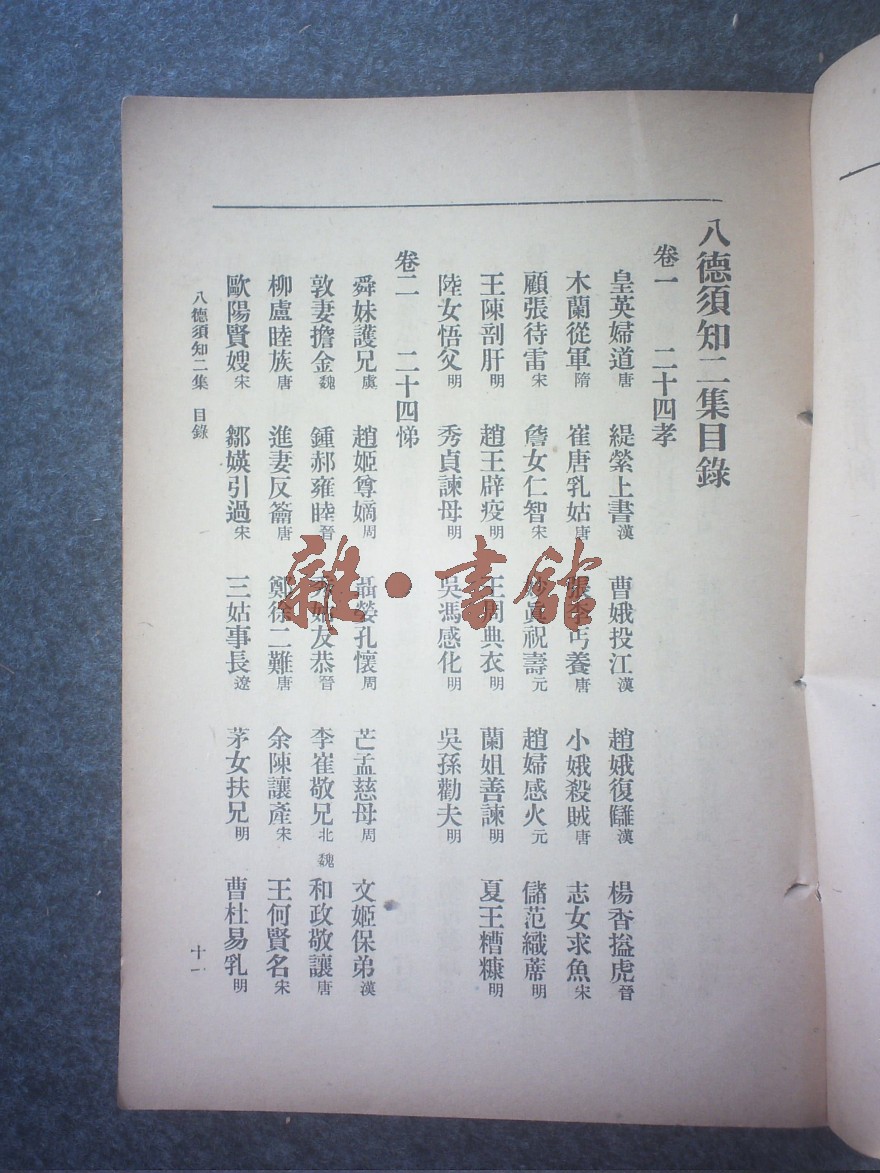 八德須知二集目錄
卷一 二十四孝
皇英婦道唐 緹縈上書漢 曹娥投江漢 趙娥復讎漢 楊香搤虎晉
木蘭從軍隋 崔唐乳姑唐 張李丐養唐 小娥殺賊唐 志女求魚宋
顧張待雷宋 詹女仁智宋 妙真祝壽元 趙婦感火元 儲范織蓆明
王陳剖肝明 趙王辟疫明 王周典衣明 蘭姐善諫明 夏王糟糠明
陸女悟父明 秀貞諫母明 吳馮感化明 吳孫勸夫明
卷二 二十四悌
舜妹護兄虞 趙姬尊嫡周 聶嫈孔懷周 芒孟慈母周 文姬保弟漢
敦妻擔金魏 鍾郝雍睦晉 友恭晉 李崔敬兄北魏 和政敬讓唐
柳盧睦族唐 進妻反籥唐 鄭徐二難唐 余陳讓產宋 王何賢名宋
歐陽賢嫂宋 鄒媖引過宋 三姑事長遼 茅女扶兄明 曹杜易乳明
八德須知二集 目錄
十一
雜·書館